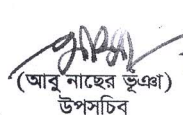 (আবু নাছের ভূঞা)
উপসচিব